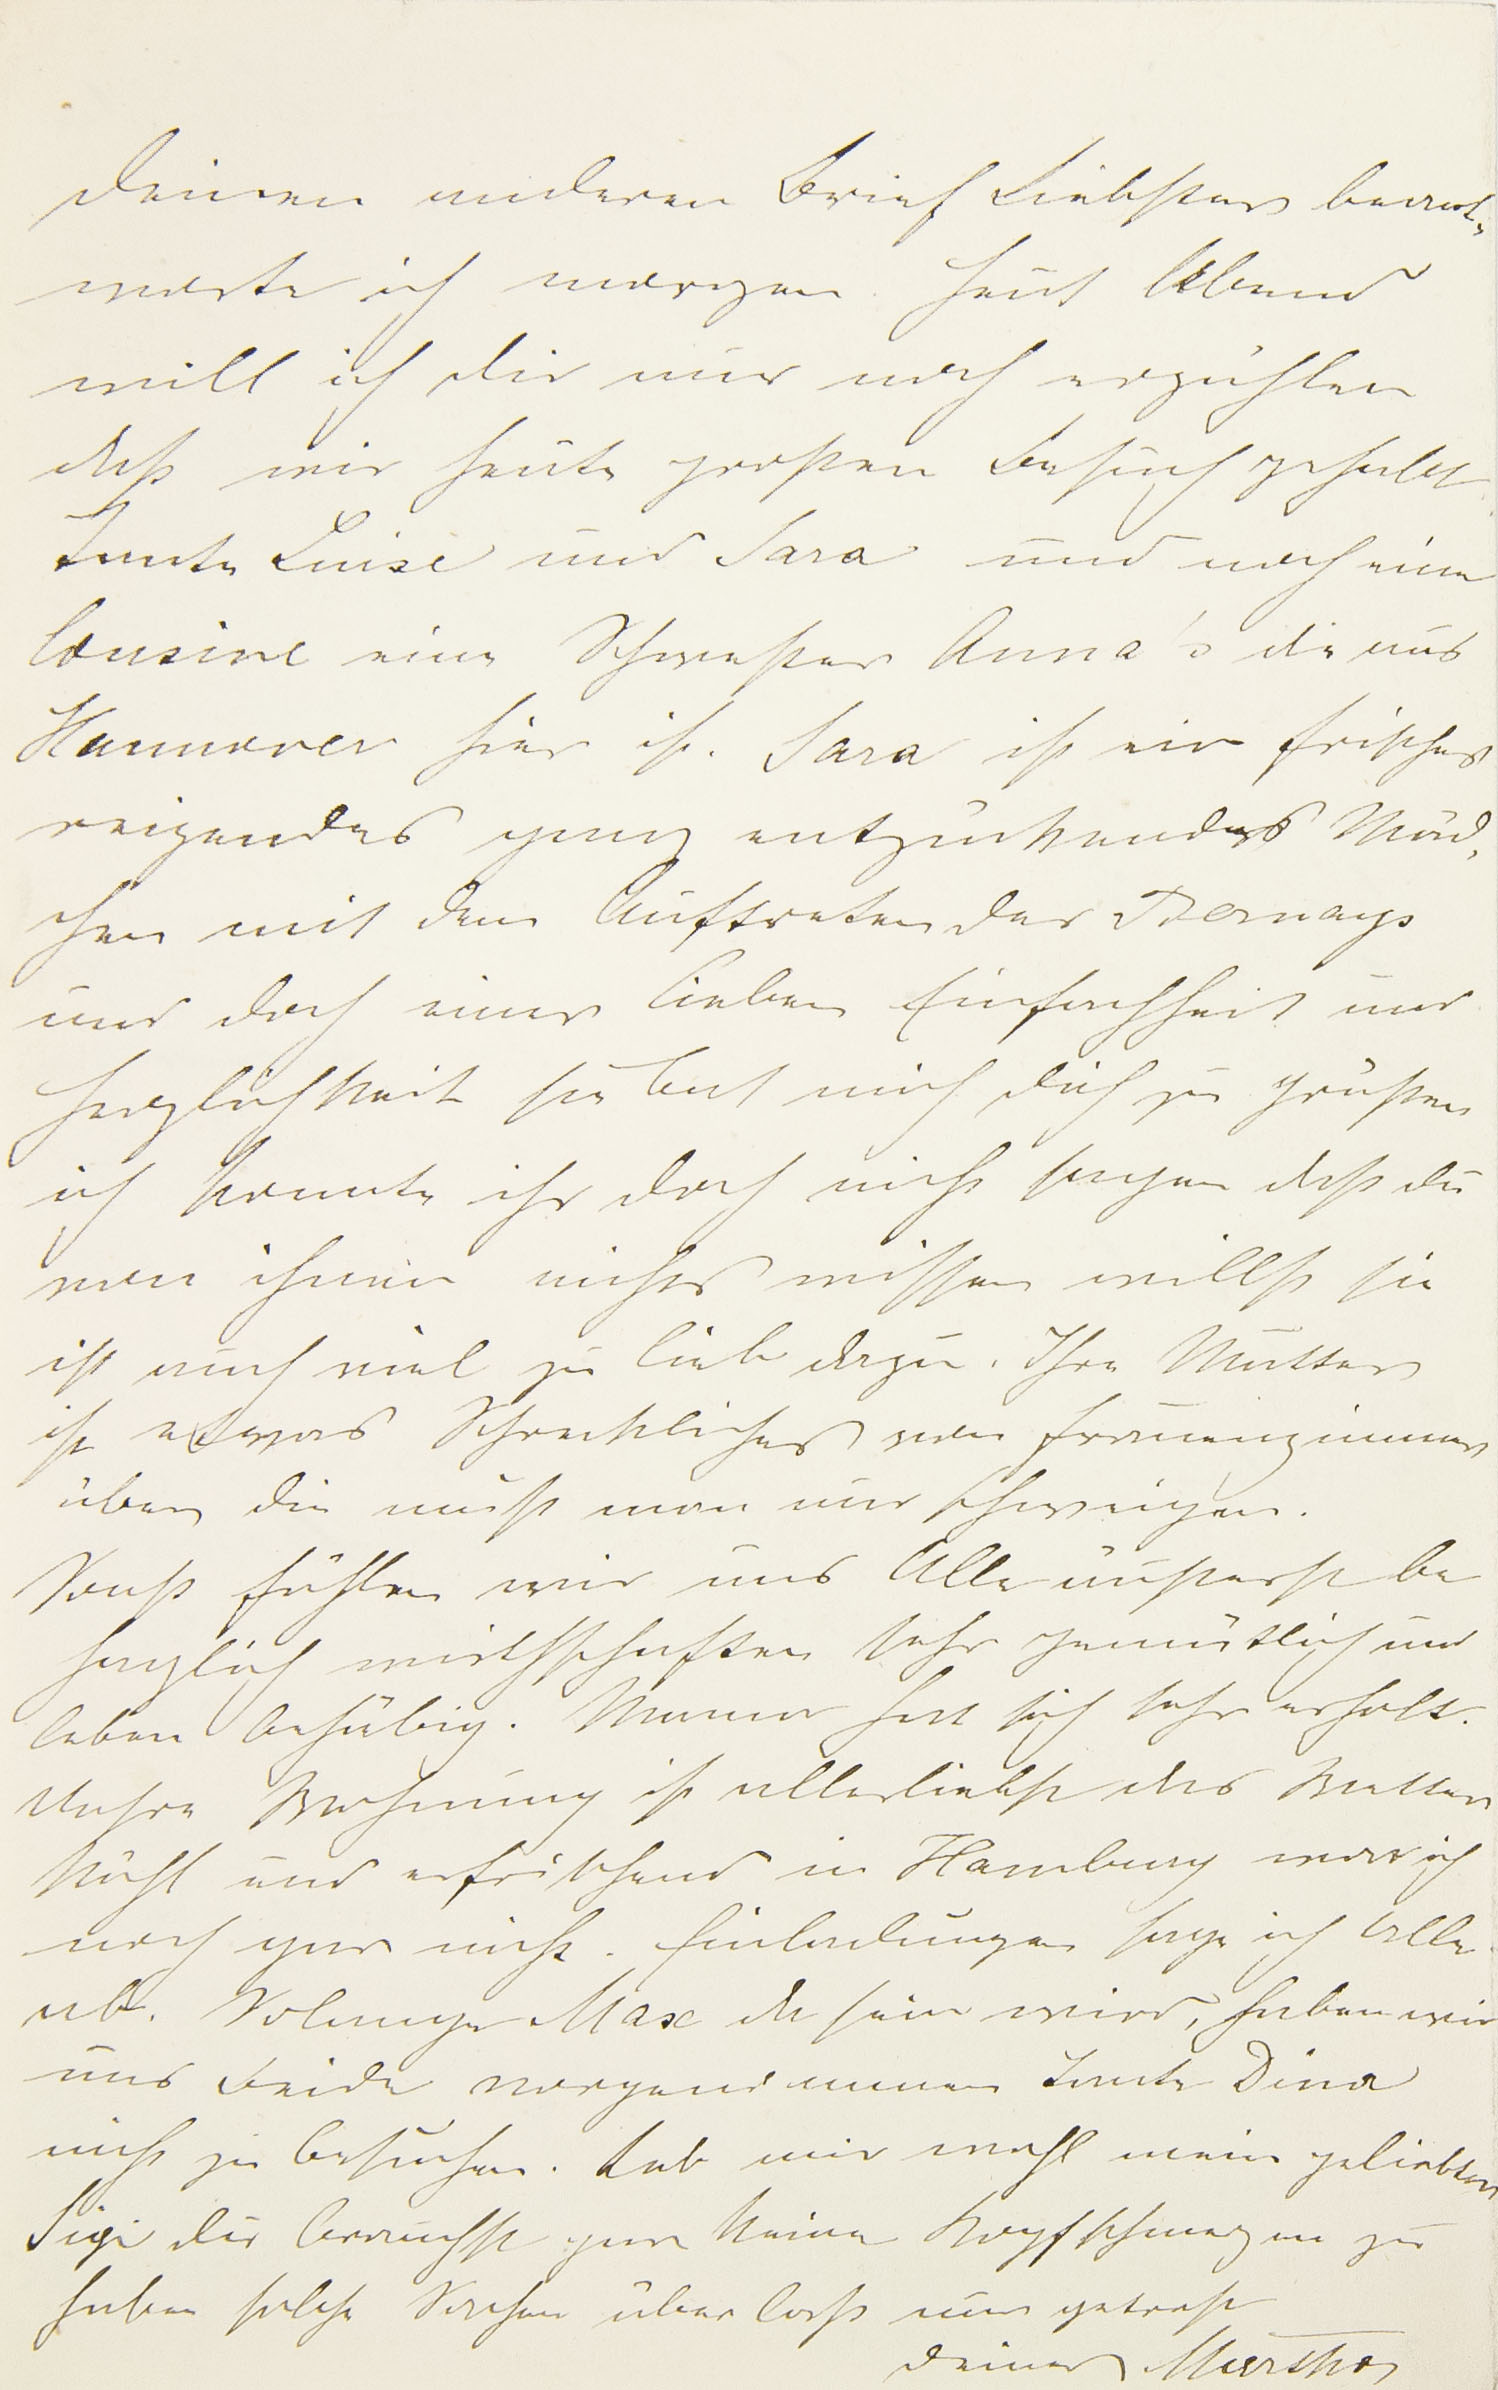 Deinen anderen Brief Liebster beant-
worte ich morgen. Heut Abend
will ich dir nur noch erzählen
daß wir heute großen Besuch gehabt
Tante Luise und Sara und noch eine
Cousine eine Schwester Anna's die aus
Hannover hier ist. Sara ist ein frisches
reizendes ganz entzückendes Mäd-
chen mit dem Auftreten der Bernays
und doch einer lieben Einfachheit und
Herzlichkeit sie bat mich dich zu grüßen
ich konnte ihr doch nicht sagen daß du
von ihnen nichts wissen willst sie
ist auch viel zu lieb dazu. Ihre Mutter
ist etwas Schreckliches von Frauenzimmer
über die muß man nur schweigen.
Sonst fühlen wir uns Alle äußerst be
haglich wirthschaften sehr gemütlich und
leben behäbig. Mama hat sich sehr erholt.
Unsre Wohnung ist allerliebst das Wetter
kühl und erfrischend in Hamburg war ich
noch gar nicht. Einladungen sage ich Alle
ab. Solange Max da sein wird, haben wir
uns Beide vorgenommen Tante Dina
nicht zu besuchen. Leb mir wohl mein geliebter
Sigi du brauchst gar keine Kopfschmerzen zu
haben solche Sachen überlass nur getrost
deiner Martha